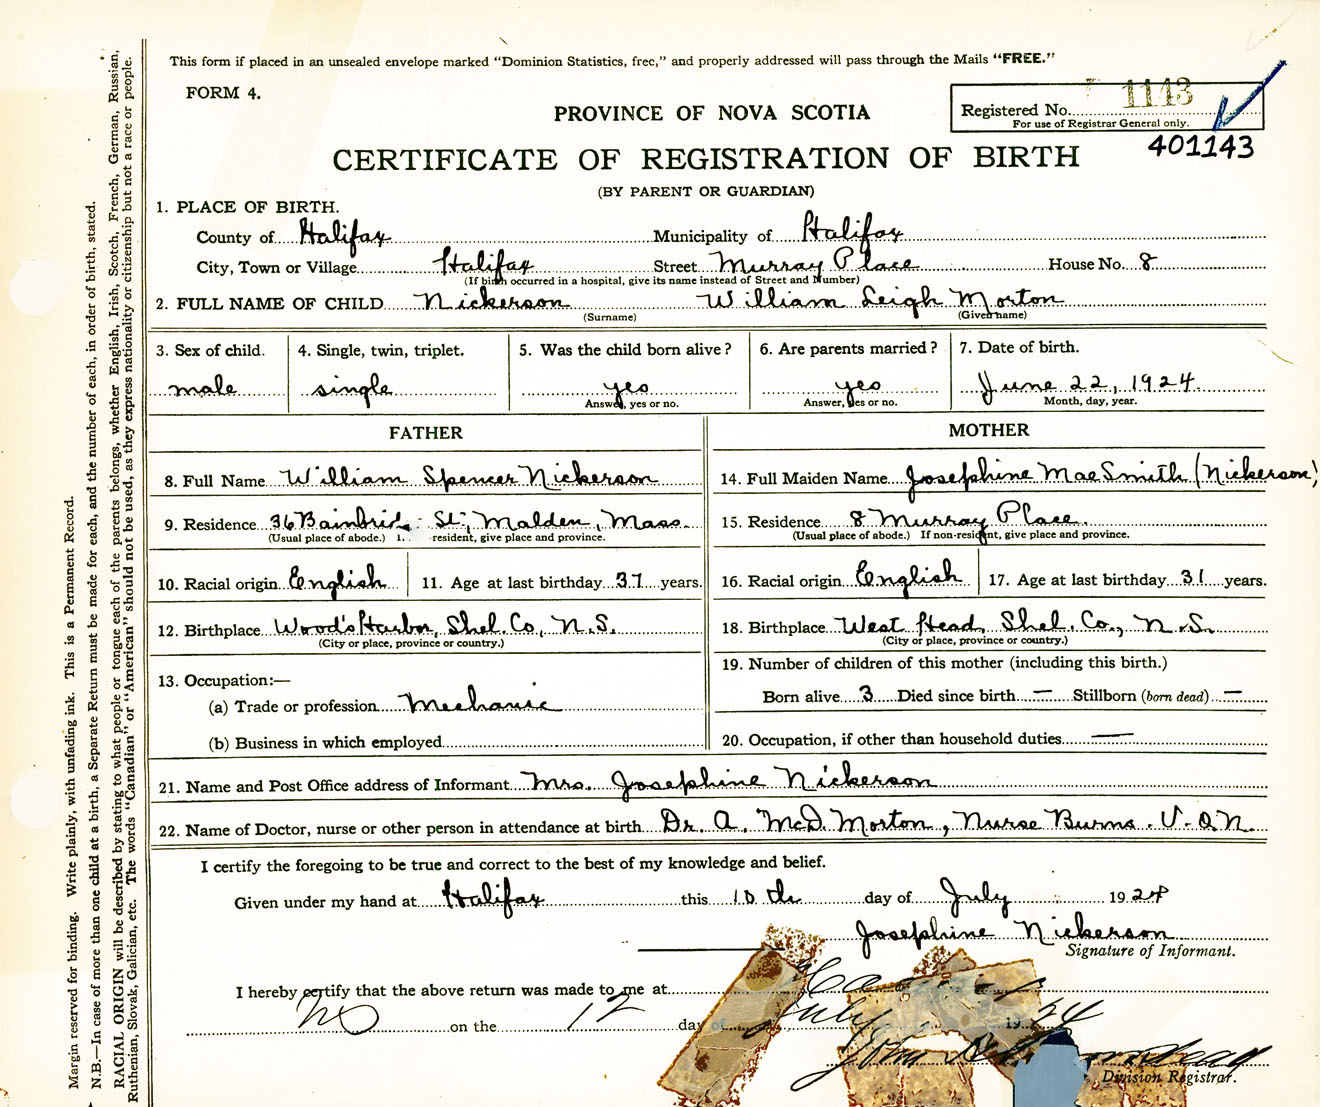 This form if placed in an unsealed envelope marked "Dominion Statistics, free," and properly addressed will pass through the Mails "FREE."
FORM 4.
PROVINCE OF NOVA SCOTIA
Registered No. 1143
For use of Registrar General only.
401143
CERTIFICATE OF REGISTRATION OF BIRTH
(BY PARENT OR GUARDIAN)
1. PLACE OF BIRTH.
County of Halifax Municipality of Halifax
City, Town or Village Halifax Street Murray Place House No. 8
(If birth occurred in a hospital, give its name instead of Street and Number)
2. FULL NAME OF CHILD Nickerson William Leigh Morton
(Surname) (Given name)
3. Sex of child. 4. Single, twin, triplet. 5. Was the child born alive? 6. Are parents married? 7. Date of birth.
male single yes yes June 22, 1924.
Answer, yes or no. Answer, yes or no. Month, day, year.
FATHER MOTHER
8. Full Name William Spencer Nickerson 14. Full Maiden Name Josephine Mae Smith (Nickerson)
9. Residence 36 St., Malden, Mass. 15. Residence 8 Murray Place.
(Usual place of abode.) resident, give place and province. (Usual place of abode.) If non-resident, give place and province.
10. Racial origin English 11. Age at last birthday 37 years. 16. Racial origin English 17. Age at last birthday 31 years.
12. Birthplace Wood's Harbor, Shel. Co., N.S. 18. Birthplace West Head, Shel. Co., N.S.
(City or place, province or country.) (City or place, province or country.)
13. Occupation:— 19. Number of children of this mother (including this birth.)
(a) Trade or profession Mechanic Born alive 3 Died since birth — Stillborn (born dead) —
(b) Business in which employed 20. Occupation, if other than household duties —
21. Name and Post Office address of Informant Mrs. Josephine Nickerson
22. Name of Doctor, nurse or other person in attendance at birth Dr. A. McD. Morton, Nurse Burns. V.O.N.
I certify the foregoing to be true and correct to the best of my knowledge and belief.
Given under my hand at Halifax this 10 th day of July 1924
Josephine Nickerson
Signature of Informant.
I hereby certify that the above return was made to me at
on the 12 day of July 1924
Division Registrar.
Margin reserved for binding. Write plainly, with unfading ink. This is a Permanent Record.
N.B.—In case of more than one child at a birth, a Separate Return must be made for each, and the number of each, in order of birth, stated.
RACIAL ORIGIN will be described by stating to what people or tongue each of the parents belongs, whether English, Irish, Scotch, French, German, Russian,
Ruthenian, Slovak, Galician, etc. The words "Canadian" or "American" should not be used, as they express nationality or citizenship but not a race or people.